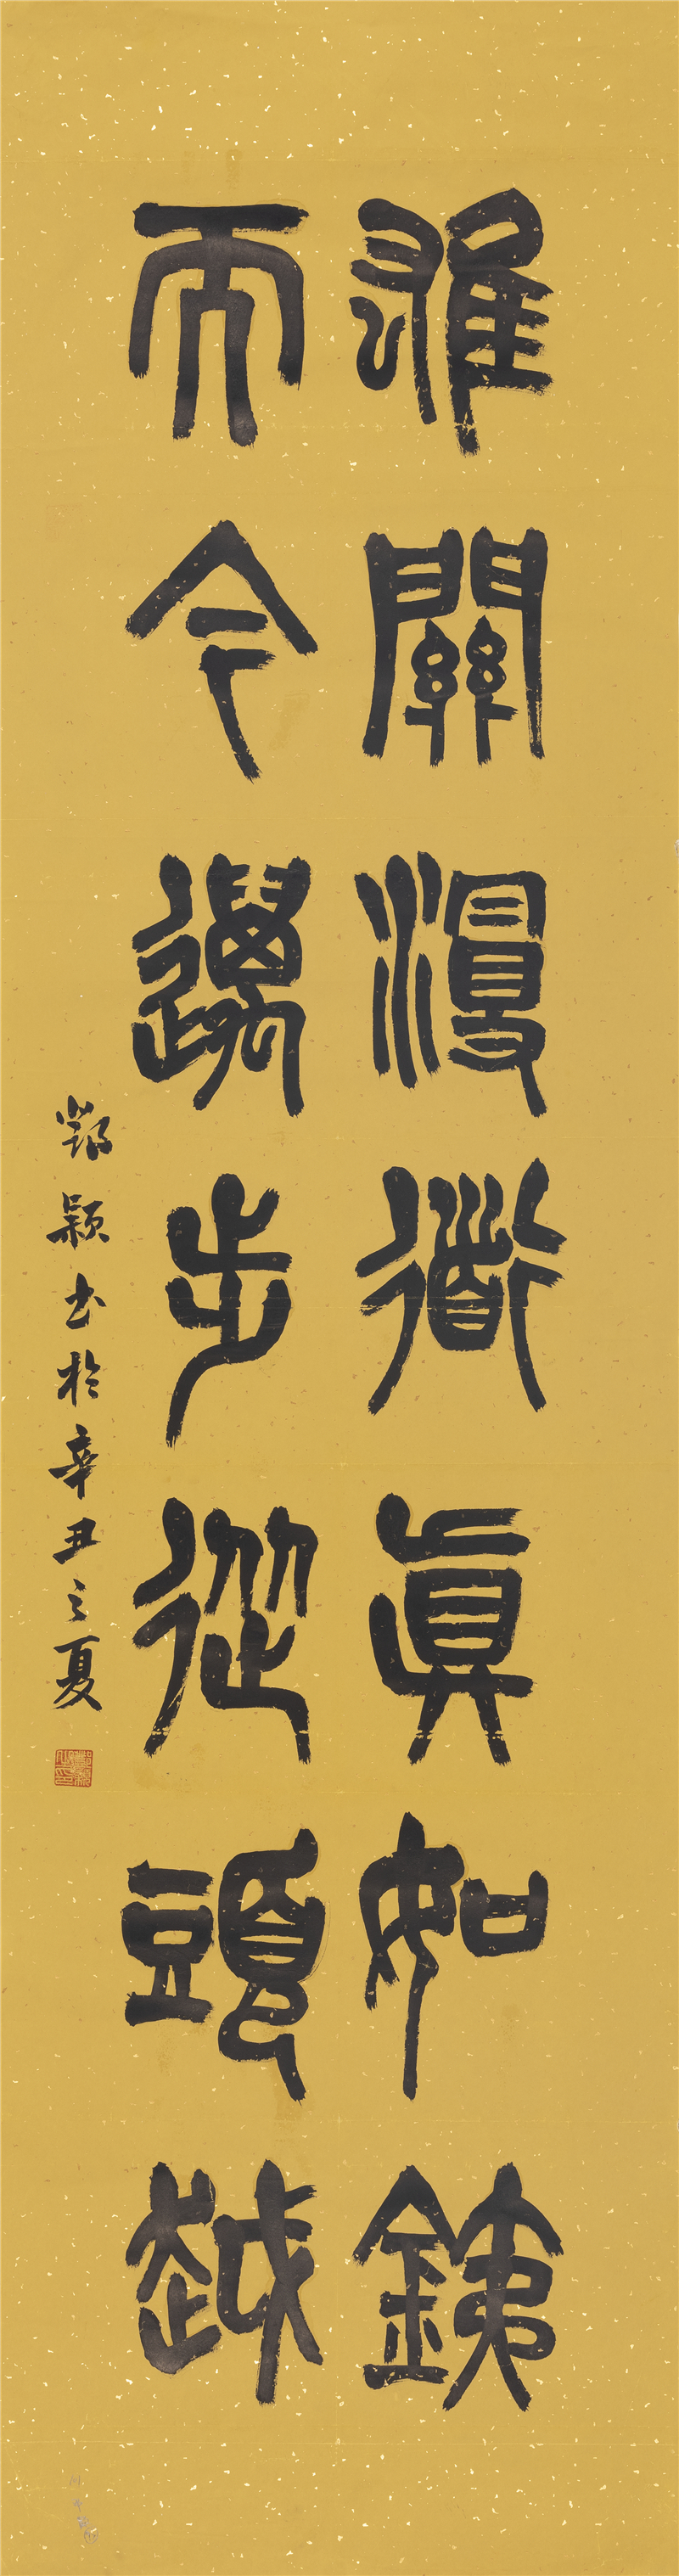 雄關漫道真如鐵
而今邁步從頭越
鄧穎書於辛丑之夏